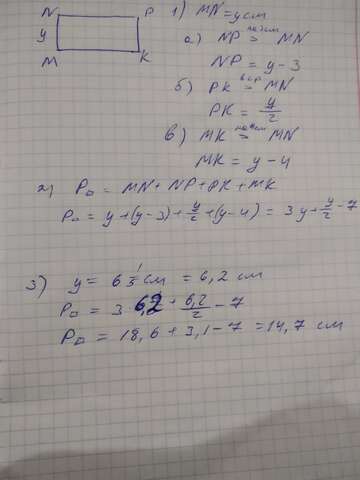 N P
y
M K
1) MN = y см
а.) NP на 3см > MN
NP = y - 3
б) PK в 2 р > MN
PK = y/2
в) MK на 4см > MN
MK = y - 4
2) P▭ = MN + NP + PK + MK
P▭ = y + (y - 3) + y/2 + (y - 4) = 3y + y/2 - 7
3) y = 6 1/5 см = 6,2 см
P▭ = 3 · 6,2 + 6,2/2 - 7
P▭ = 18,6 + 3,1 - 7 = 14,7 см